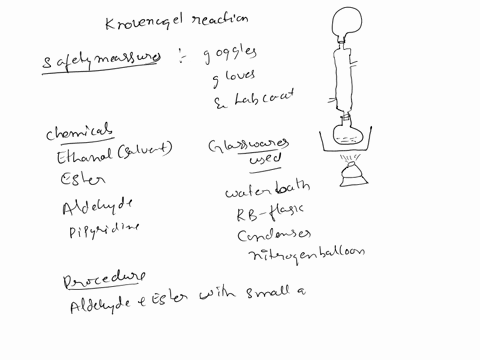 Knovenagel reaction
Safety meassure :- goggles
gloves
& Labcoat
Chemicals
Ethanol (solvent)
Ester
Aldehyde
Pipyridine
Glasswares
used
waterbath
RB-flask
Condenser
nitrogen balloon
Procedure
Aldehyde + Ester with small a